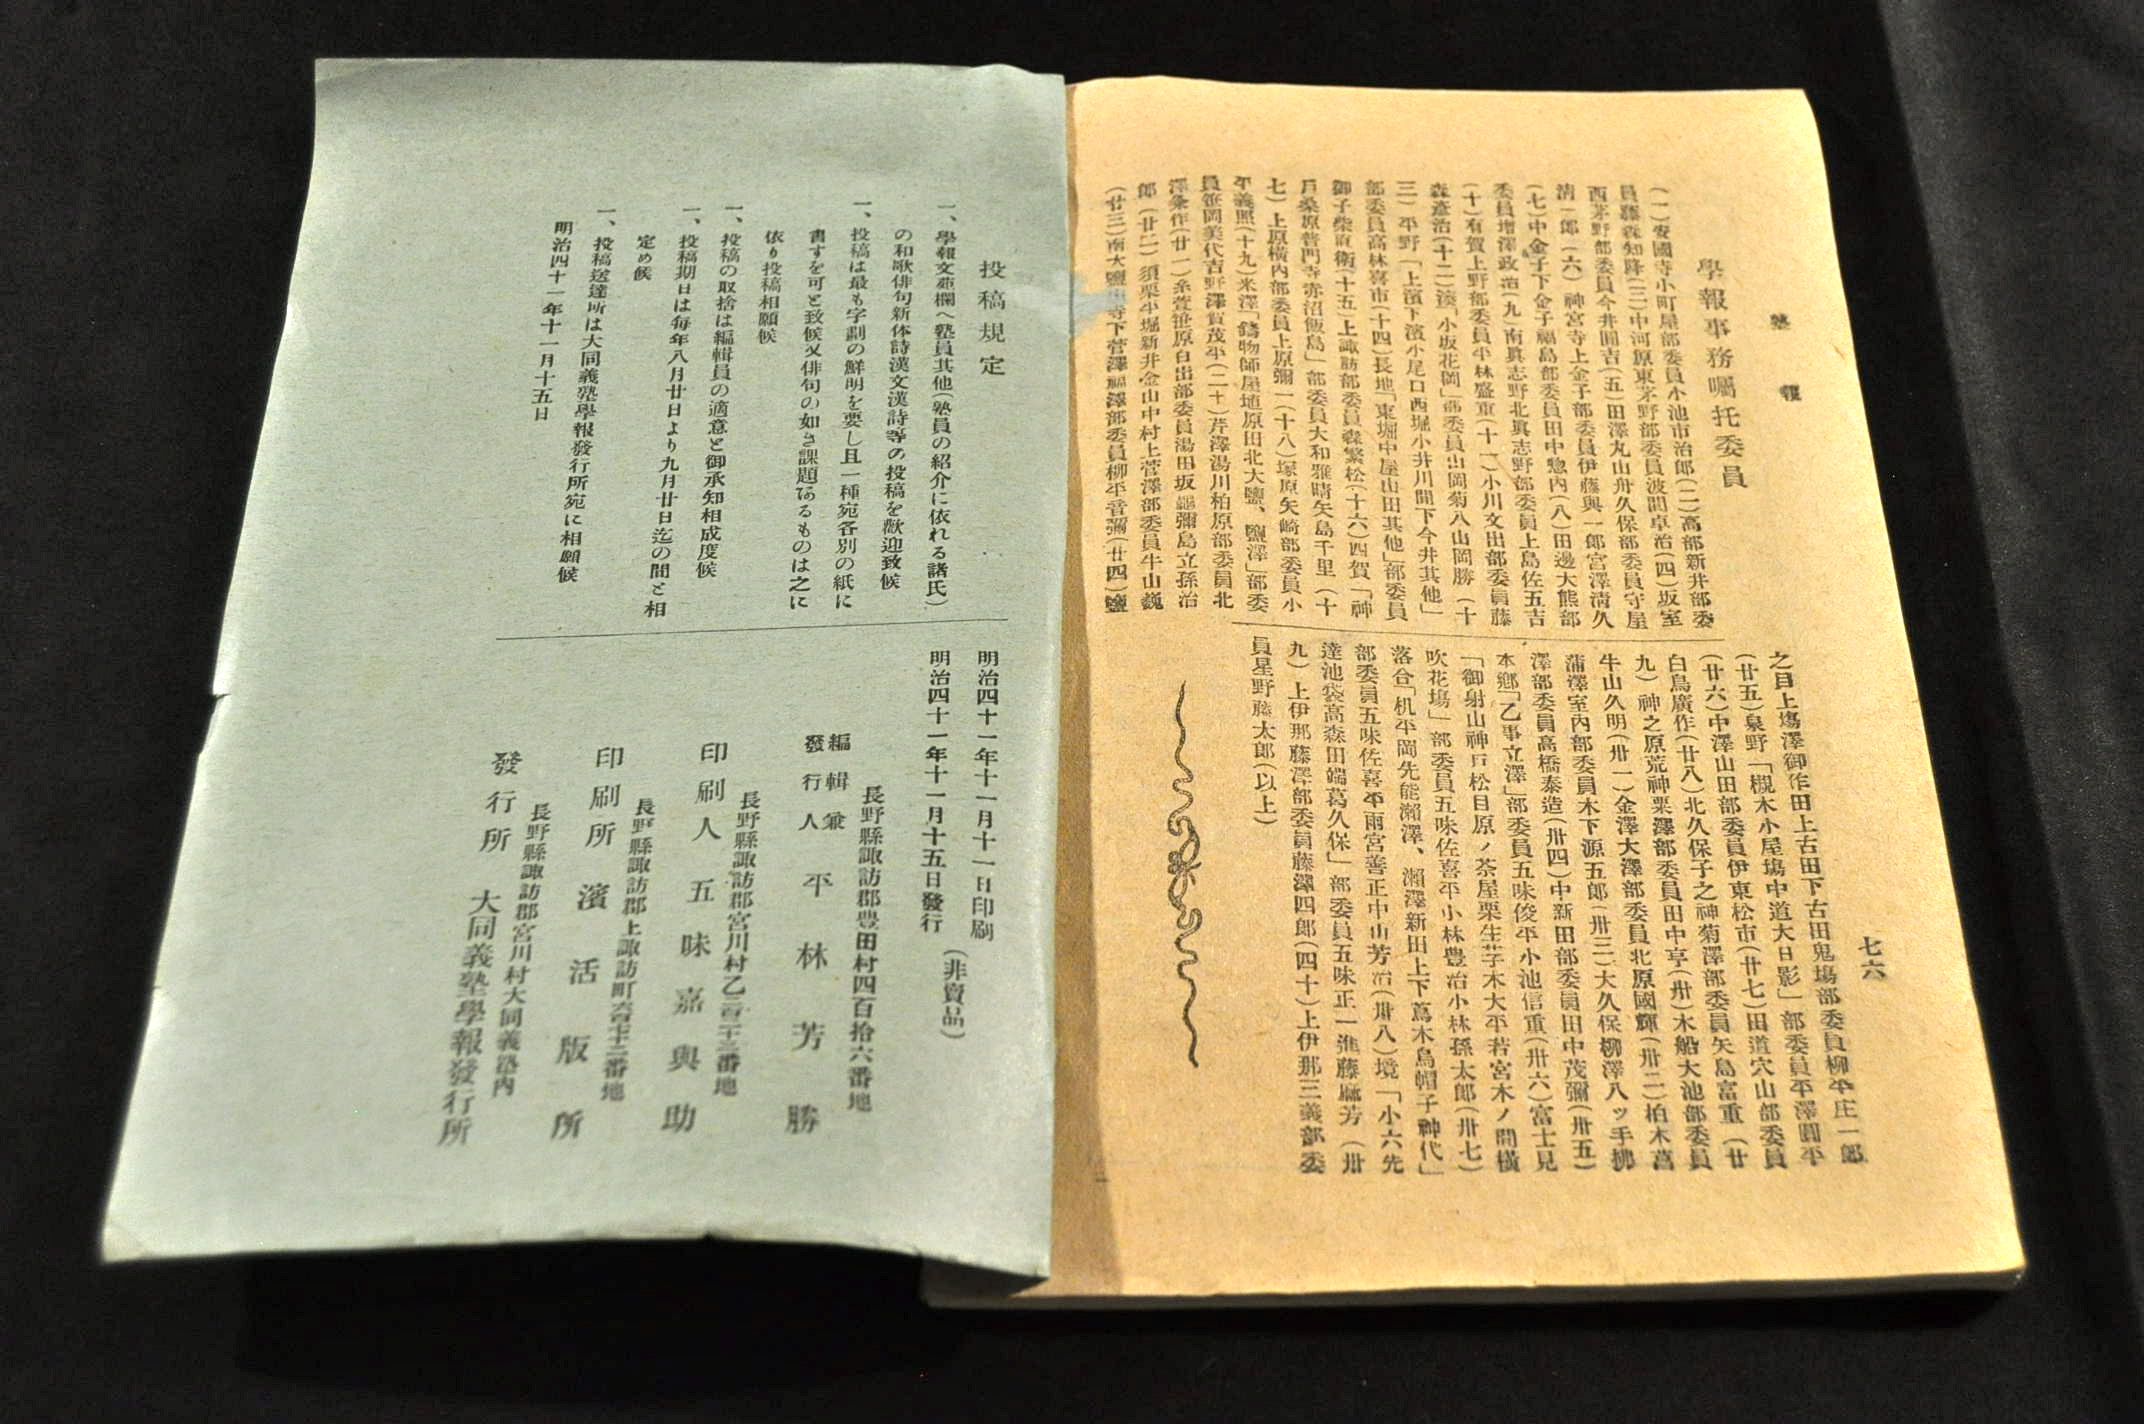 塾報
七六
學報事務囑托委員
(一)安國寺小町屋部委員小池市治郎(二)高部新井部委
員藤森知降(三)中河原東茅野部委員波間卓治(四)坂室
西茅野部委員今井圓吉(五)田澤丸山舟久保部委員守屋
淸一郎(六)神宮寺上金子部委員伊藤與一郎宮澤淸久
(七)中金子下金子福島部委員田中惣内(八)田邊大熊部
委員增澤政治(九)南眞志野北眞志野部委員上島佐五吉
(十)有賀上野部委員平林盛重(十一)小川文出部委員藤
森彥治(十二)湊「小坂花岡」部委員出岡菊八山岡勝(十
三)平野「上濱下濱小尾口西堀小井川間下今井其他」
部委員高林喜市(十四)長地「東堀中屋山田其他」部委員
御子柴直衛(十五)上諏訪部委員森繁松(十六)四賀「神
戶桑原普門寺赤沼飯島」部委員大和雅晴矢島千里(十
七)上原橫内部委員上原彌一(十八)塚原矢崎部委員小
平義照(十九)米澤「鑄物師屋埴原田北大鹽、鹽澤」部委
員笹岡美代吉野澤賀茂平(二十)芹澤湯川柏原部委員北
澤粂作(廿一)糸萱笹原白出部委員湯田坂龜彌島立孫治
郎(廿二)須栗平堀新井金山中村上菅澤部委員牛山巍
(廿三)南大鹽中寺下菅澤福澤部委員柳平音彌(廿四)鹽
之目上塲澤御作田上古田下古田鬼塲部委員柳平庄一郎
(廿五)泉野「槻木小屋塲中道大日影」部委員平澤圓平
(廿六)中澤山田部委員伊東松市(廿七)田道穴山部委員
白鳥廣作(廿八)北久保子之神菊澤部委員矢島富重(廿
九)神之原荒神粟澤部委員田中亨(卅)木船大池部委員
牛山久明(卅一)金澤大澤部委員北原國輝(卅二)柏木菖
蒲澤室内部委員木下源五郎(卅三)大久保柳澤八ッ手拂
澤部委員高橋泰造(卅四)中新田部委員田中茂彌(卅五)
本鄕「乙事立澤」部委員五味俊平小池信重(卅六)富士見
「御射山神戸松目原ノ茶屋栗生芓木大平若宮木ノ間橫
吹花塲」部委員五味佐喜平小林豊治小林孫太郎(卅七)
落合「机平岡先能瀨澤、瀨澤新田上下蔦木烏帽子神代」
部委員五味佐喜平雨宮善正中山芳治(卅八)境「小六先
達池袋高森田端葛久保」部委員五味正一進藤麻芳(卅
九)上伊那藤澤部委員藤澤四郎(四十)上伊那三義部委
員星野藤太郎(以上)
投稿規定
一、學報文苑欄へ塾員其他(塾員の紹介に依れる諸氏)
の和歌俳句新体詩漢文漢詩等の投稿を歡迎致候
一、投稿は最も字劃の鮮明を要し且一種宛各別の紙に
書すを可と致候又俳句の如き課題あるものは之に
依り投稿相願候
一、投稿の取捨は編輯員の適意と御承知相成度候
一、投稿期日は每年八月廿日より九月廿日迄の間と相
定め候
一、投稿送達所は大同義塾學報發行所宛に相願候
明治四十一年十一月十五日
明治四十一年十一月十一日印刷
明治四十一年十一月十五日發行
(非賣品)
長野縣諏訪郡豊田村四百拾六番地
編輯兼
發行人 平林芳勝
長野縣諏訪郡宮川村乙三百二十三番地
印刷人 五味嘉與助
長野縣諏訪郡上諏訪町六百七十二番地
印刷所 濱活版所
長野縣諏訪郡宮川村大同義塾内
發行所 大同義塾學報發行所